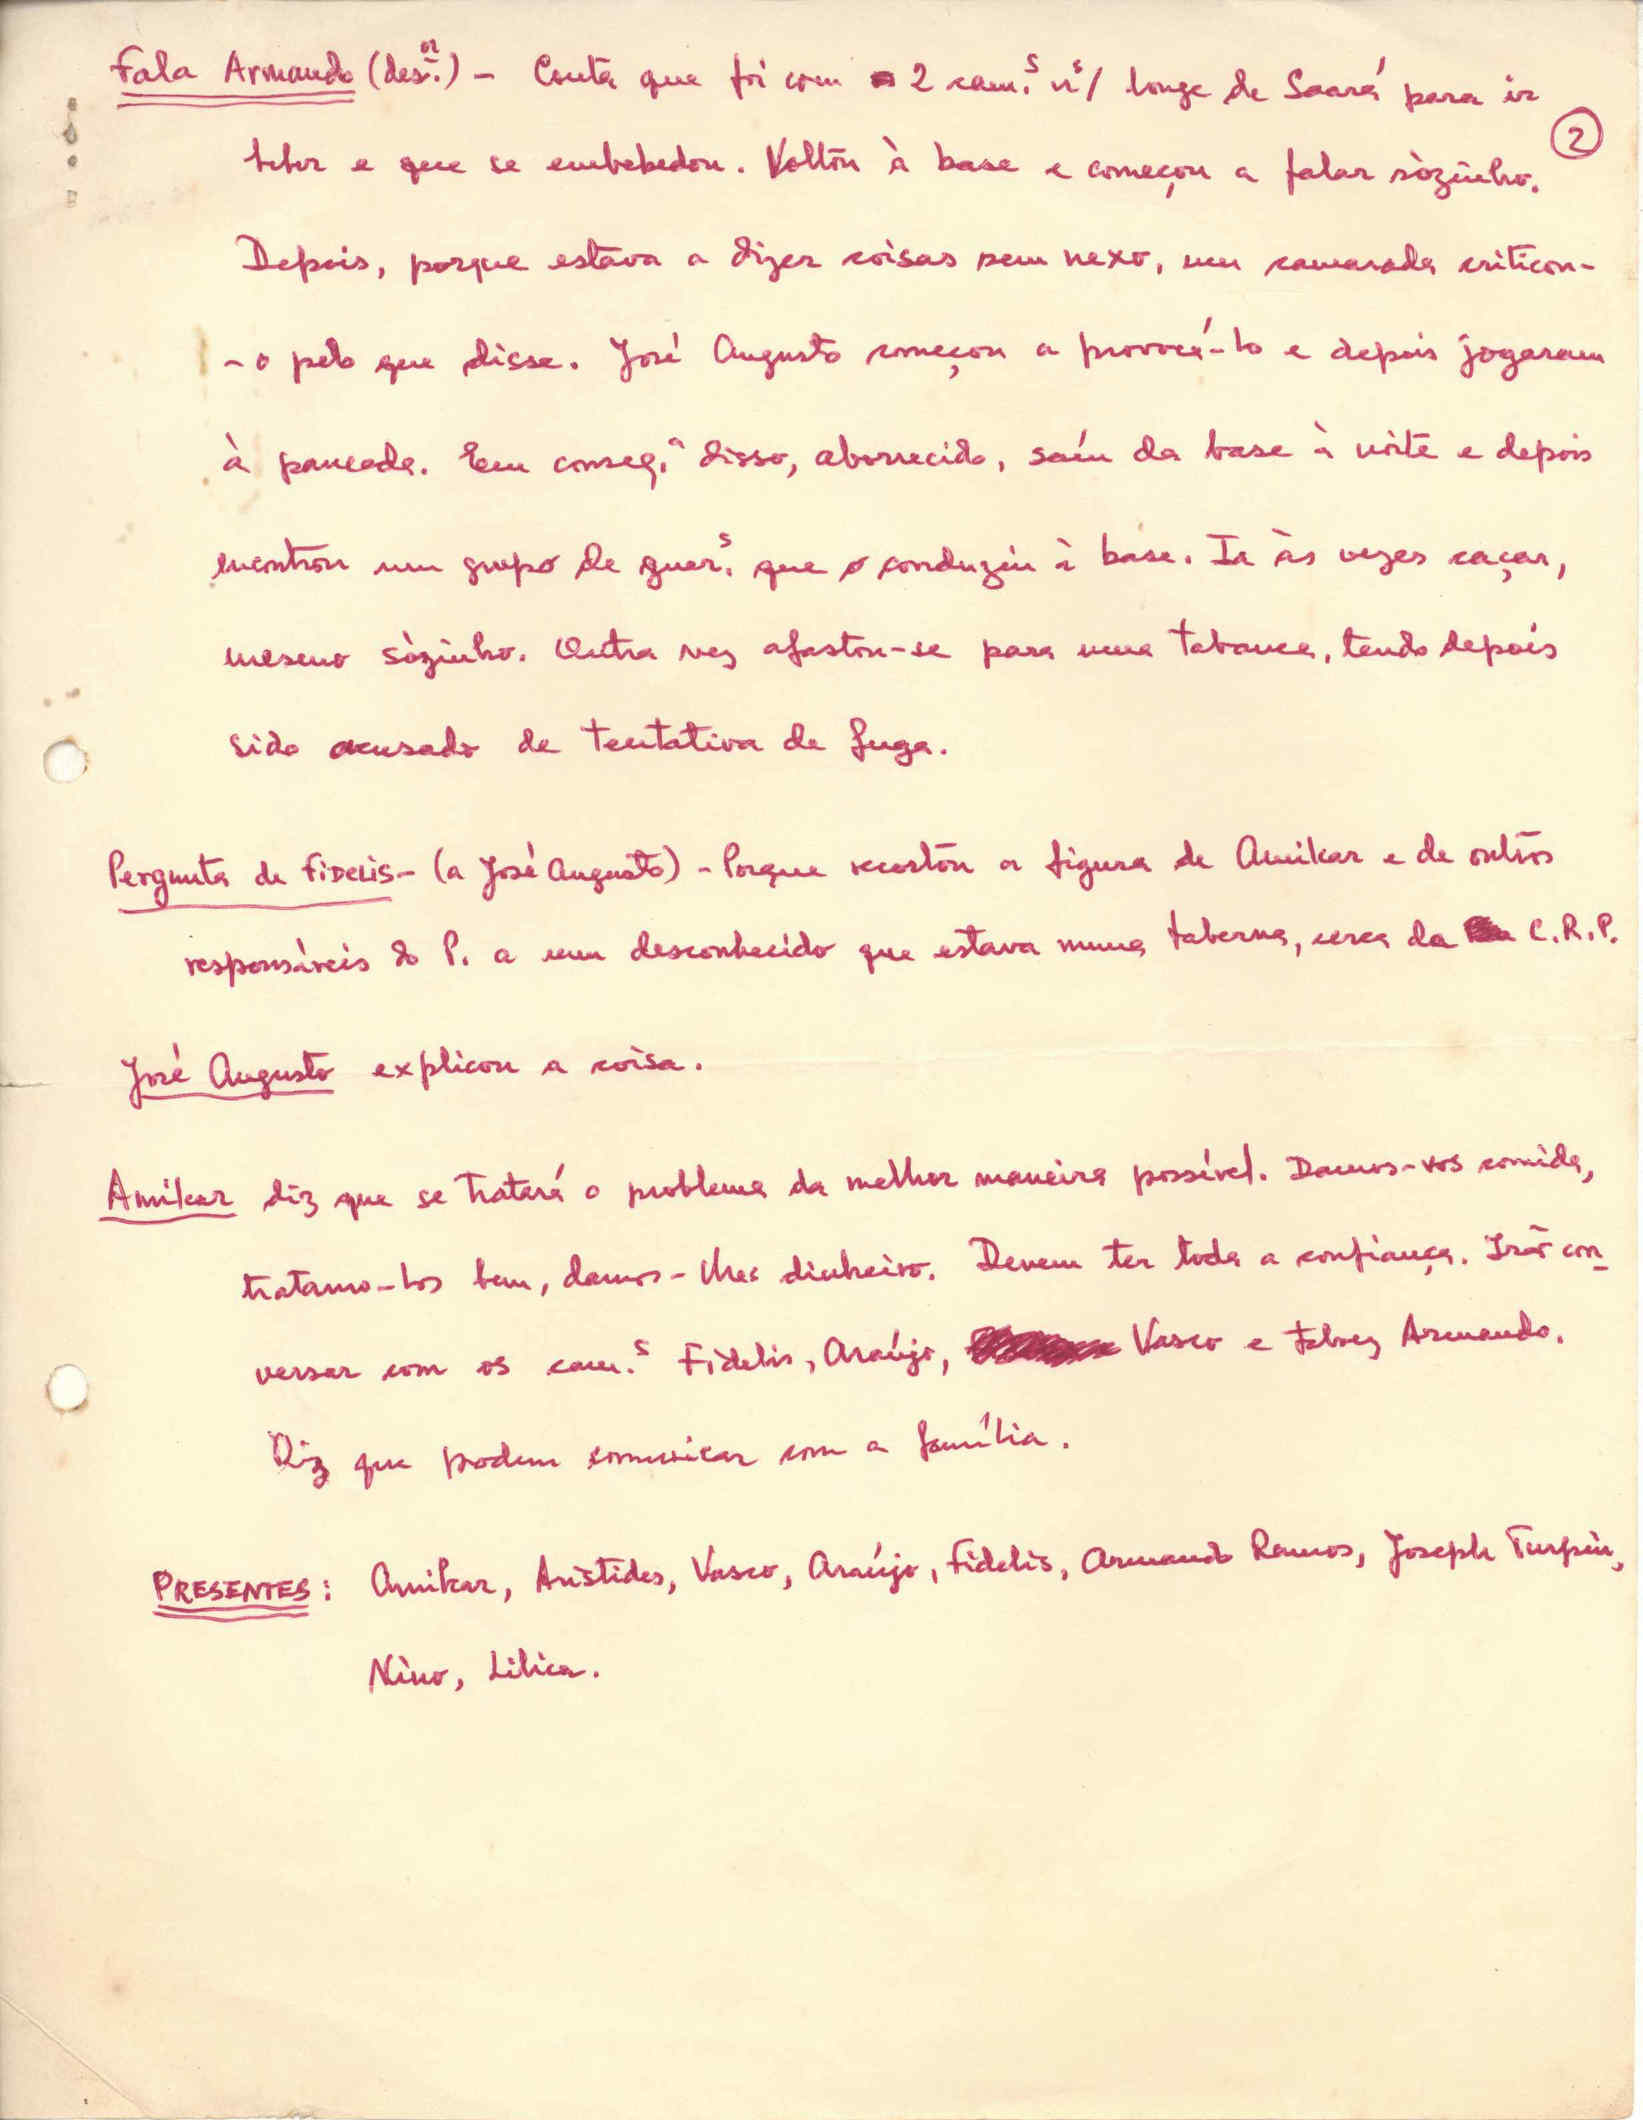 Fala Armando (des.or) – Conta que foi com 2 cam.s n/s longe de Saará para ir
②
beber e que se embebedou. Voltou à base e começou a falar sòzinho.
Depois, porque estava a dizer coisas sem nexo, um camarada criticou-
-o pelo que disse. José Augusto começou a provocá-lo e depois jogaram
à pancada. Em conseq.ª disso, aborrecido, saíu da base à noite e depois
encontrou um grupo de guer.s que o conduziu à base. Ia às vezes caçar,
mesmo sòzinho. Outra vez afastou-se para uma tabanca, tendo depois
sido acusado de tentativa de fuga.
Pergunta de FIDELIS – (a José Augusto) – Porque recortou a figura de Amilcar e de outros
responsáveis do P. a um desconhecido que estava numa taberna, cerca da C.R.P.
José Augusto explicou a coisa.
Amilcar diz que se tratará o problema da melhor maneira possível. Damos-vos comida,
tratamo-los bem, damos-lhes dinheiro. Devem ter toda a confiança. Irão con-
versar com os cam.s Fidelis, Araújo, Vasco e talvez Armando.
Diz que podem comunicar com a família.
PRESENTES: Amilcar, Aristides, Vasco, Araújo, Fidelis, Armando Ramos, Joseph Turpin,
Nino, Lilica.